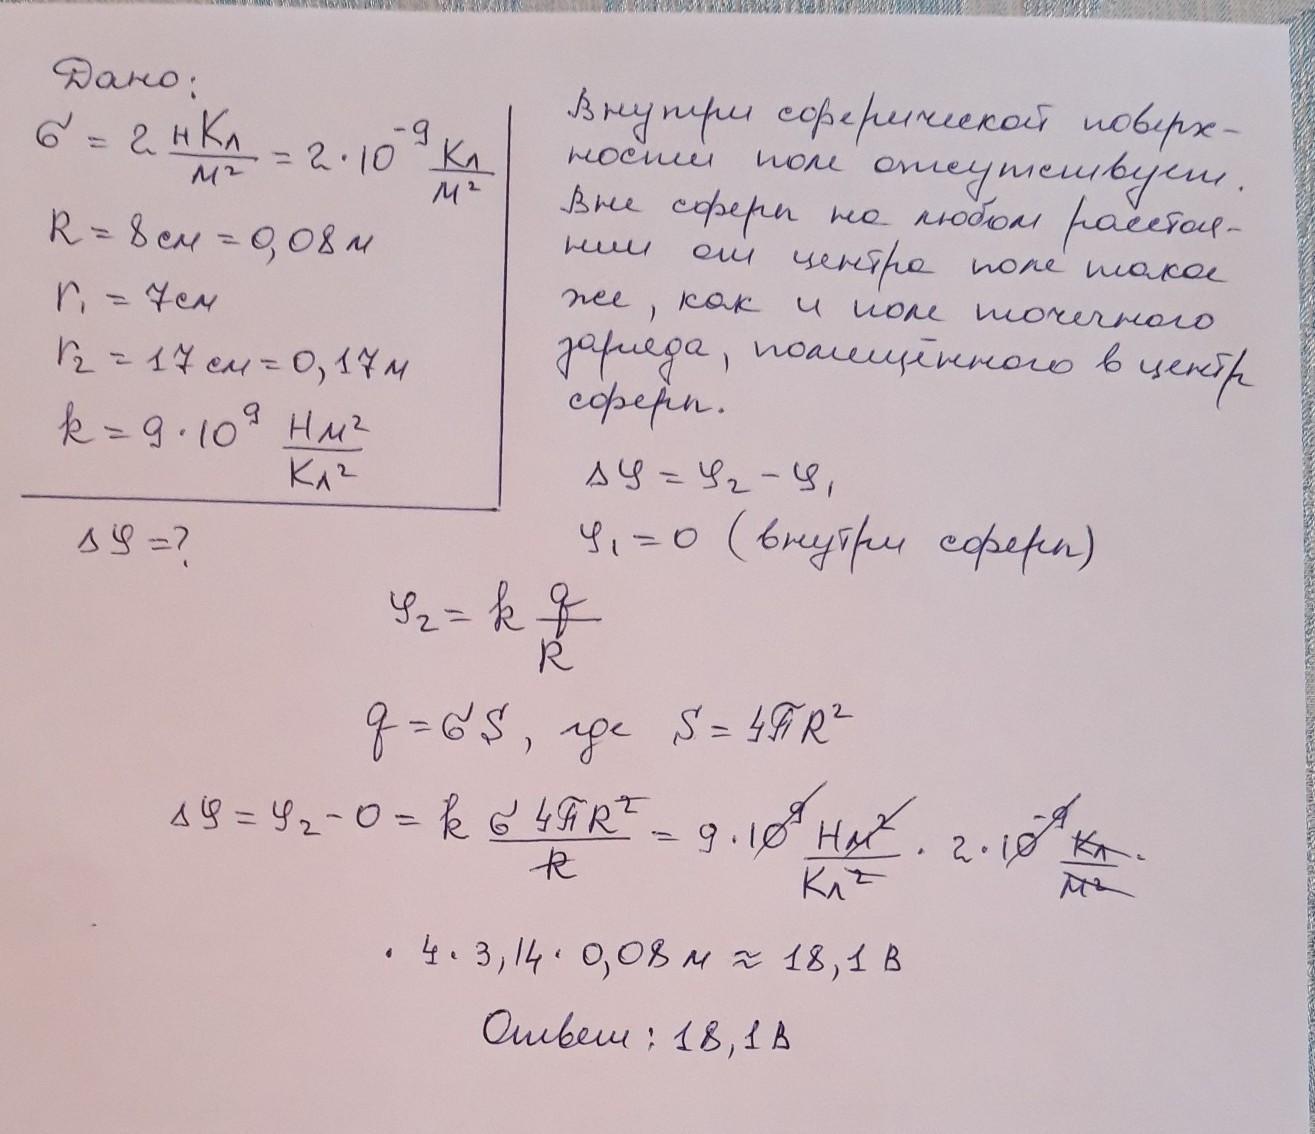 Дано:
σ = 2 нКл/м² = 2·10⁻⁹ Кл/м²
R = 8 см = 0,08 м
r₁ = 7 см
r₂ = 17 см = 0,17 м
k = 9·10⁹ Нм²/Кл²
Δφ = ?
Внутри сферической поверх-
ности поле отсутствует.
Вне сферы на любом расстоя-
нии от центра поле такое
же, как и поле точечного
заряда, помещённого в центр
сферы.
Δφ = φ₂ - φ₁
φ₁ = 0 (внутри сферы)
φ₂ = k q/R
q = σS, где S = 4πR²
Δφ = φ₂ - 0 = k σ4πR²/R = 9·10⁹ Нм²/Кл² · 2·10⁻⁹ Кл/м² ·
· 4·3,14·0,08 м ≈ 18,1 В
Ответ: 18,1 В